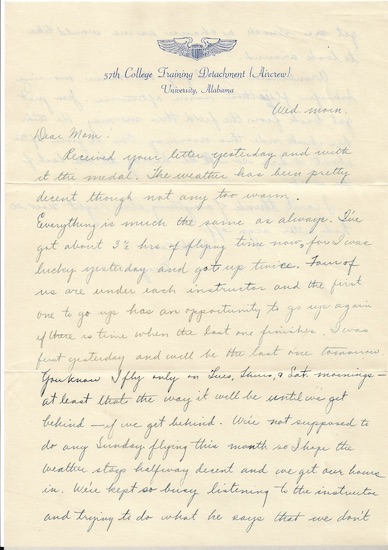 57th College Training Detachment (Aircrew)
University, Alabama
Wed. morn.
Dear Mom:
Received your letter yesterday and with
it the medal. The weather has been pretty
decent though not any too warm.
Everything is much the same as always. I've
got about 3½ hrs of flying time now, for I was
lucky yesterday and got up twice. Four of
us are under each instructor and the first
one to go up has an opportunity to go up again
if there is time when the last one finishes. I was
first yesterday and will be the last one tomorrow.
You know I fly only on Tues, Thurs, & Sat. mornings -
at least that's the way it will be until we get
behind - if we get behind. We're not supposed to
do any Sunday flying this month so I hope the
weather stays halfway decent and we get our hours
in. We're kept so busy listening to the instructor
and trying to do what he says that we don't